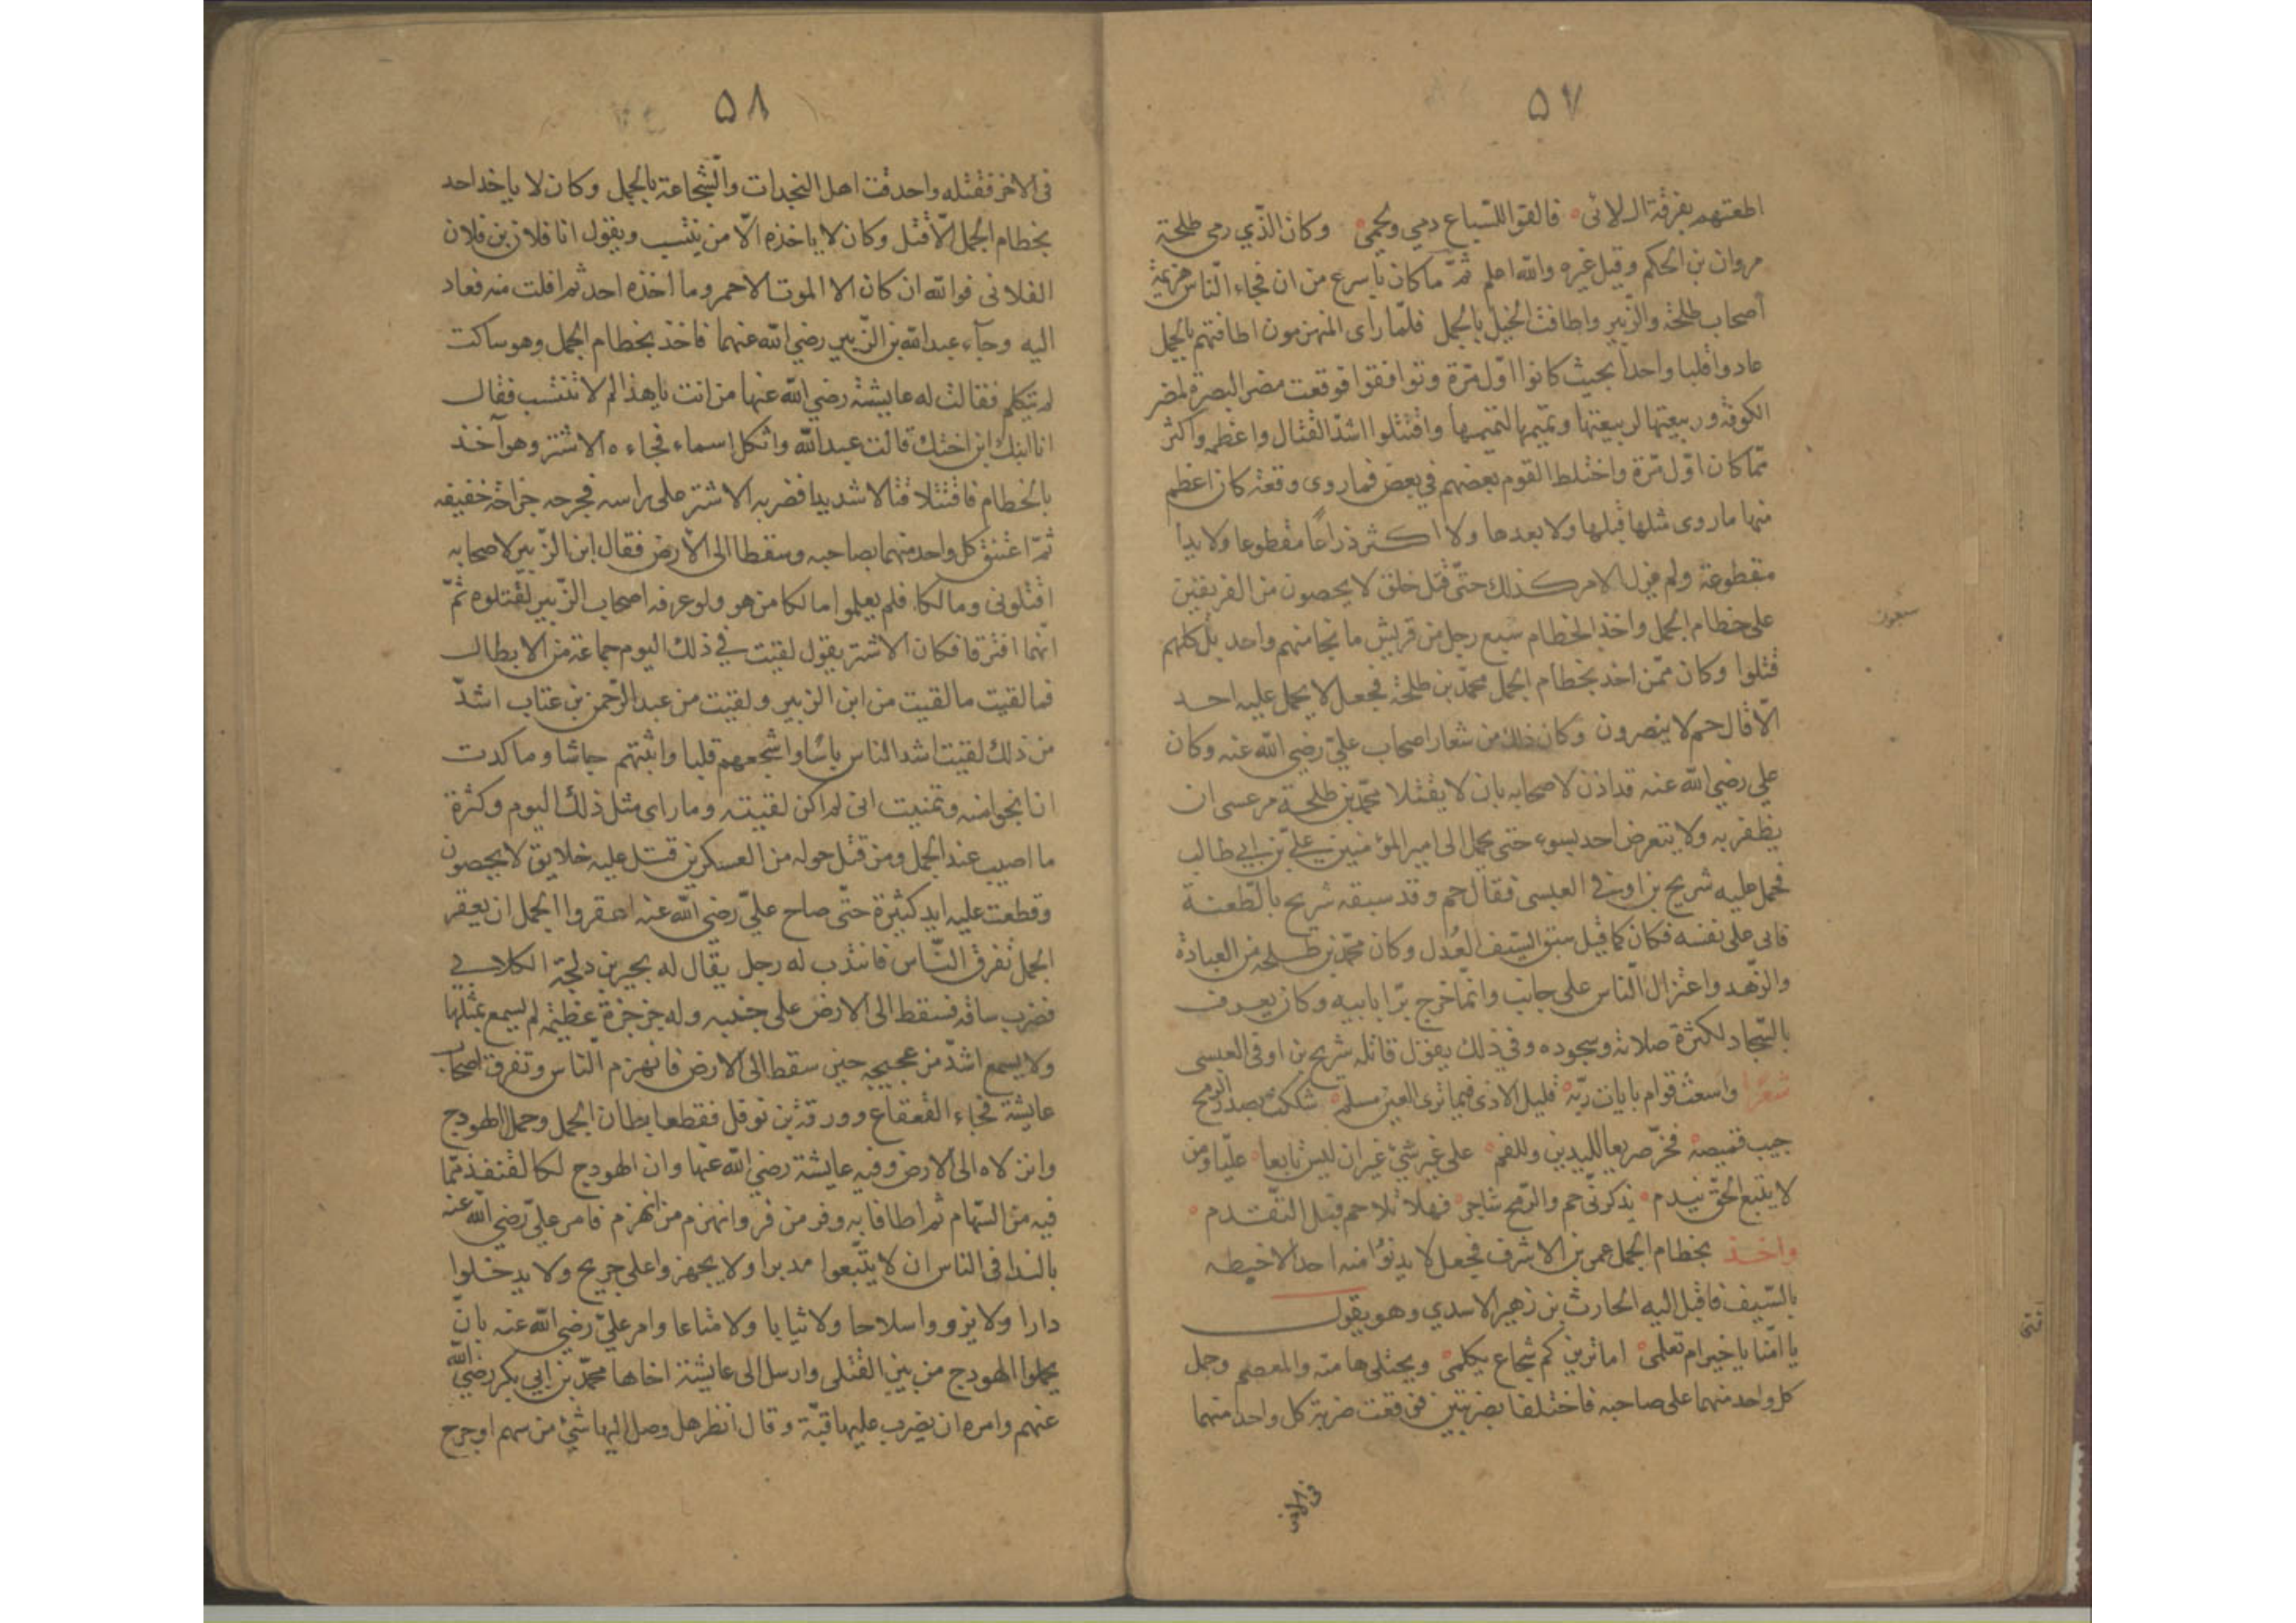 ٥٧
اطعتهم بفرقة ال لائى فالقوا للسباع دمي ولحمي وكان الذي رمى طلحة
مروان بن الحكم وقيل غيره والله اعلم ثمّ ما كان باسرع من ان فجاء الناس هزيمة
اصحاب طلحة والزبير واطافت الخيل بالجمل فلمّا راى المنهزمون اطافتهم بالجمل
عادوا قلبا واحدا بحيث كانوا اوّل مرّة وتوافقوا فوقعت مضر البصرة لمضر
الكوفة وربيعتها لربيعتها وتميمها لتميمها واقتتلوا اشدّ القتال واعظم واكثر
ممّا كان اوّل مرّة واختلط القوم بعضهم في بعض فما روى وقعة كان اعظم
منها ما روى مثلها قبلها ولا بعدها ولا اكثر ذراعًا مقطوعا ولا يدا
مقطوعة ولم يزل الامر كذلك حتّى قتل خلق لا يحصون من الفريقين
على خطام الجمل واخذ الخطام سبع رجل من قريش ما نجا منهم واحد بل كلهم
سبعون
قتلوا وكان ممّن اخذ بخطام الجمل محمّد بن طلحة فجعل لا يحمل عليه احد
الّا قال حم لا ينصرون وكان ذلك من شعار اصحاب عليّ رضي الله عنه وكان
علي رضي الله عنه قد اذن لاصحابه بان لا يقتلا محمّد بن طلحة من عسى ان
يظفر به ولا يتعرض احد بسوء حتى يحمل الى امير المؤمنين عليّ بن ابي طالب
فحمل عليه شريح بن اوفى العبسى فقال حم وقد سبقه شريح بالطعنة
فاتى على نفسه فكان كما قيل سبق السّيف العُدل وكان محمّد بن طلحه من العبادة
والزّهد واعتزال النّاس على جانب وانّما خرج برّا بابيه وكان يعرف
بالسّجاد لكثرة صلاته وسجوده وفي ذلك يقول قاتله شريح بن اوفى العبسى
شعرًا واشعث قوام بايات ربّه قليل الاذى فيما ترى العين مسلم شككت بصدر الرمح
جيب قميصه فخرّ صريعا لليدين وللفم على غير شيءٍ غير ان ليس تابعا عليّا ومن
لا يتبع الحقّ يندم يذكرنى حم والرّمح شاجر فهلا تلا حم قبل التّقدم
واخذ بخطام الجمل عمر بن الاشرف فجعل لا يدنوا منه احد الا خبطه
بالسّيف فاقبل اليه الحارث بن زهير الاسدي وهو يقول
يا امّنا يا خير ام تعلمي اما ترين كم شجاع يكلمى ويختلى هامته والمعصم وحمل
كل واحد منهما على صاحبه فاختلفا بضربتين فوقعت ضربة كل واحد منهما
فى الاخر
٥٨
فى الاخر فقتله واحدقت اهل النجدات والشّجاعة بالجمل وكان لا ياخذ احد
بخطام الجمل الّا قتل وكان لا ياخذه الّا من ينتسب ويقول انا فلان بن فلان
الفلانى فوالله ان كان الا الموت الاحمر وما اخذه احد ثم افلت منه فعاد
اليه وجآء عبدالله بن الزّبير رضي الله عنهما فاخذ بخطام الجمل وهو ساكت
لم يتكلم فقالت له عايشة رضي الله عنها من انت يا هذا لم لا تنتسب فقال
انا ابنك ابن اختك قالت عبدالله واثكل اسماء فجاءه الاشتر وهو آخذ
بالخطام فاقتتلا قتالا شديدا فضربه الاشتر على راسه فجرحه جراحة خفيفه
ثمّ اعتنق كل واحد منهما بصاحبه وسقطا الى الارض فقال ابن الزّبير لاصحابه
اقتلونى ومالكا فلم يعلموا مالكا من هو ولو عرفه اصحاب الزّبير لقتلوه ثمّ
انّهما افترقا فكان الاشتر يقول لقيت في ذلك اليوم جماعة من الابطال
فما لقيت ما لقيت من ابن الزبير ولقيت من عبد الرّحمن بن عتاب اشدّ
من ذلك لقيت اشد الناس باسًا واشجعهم قلبا واثبتهم جاشا وما كدت
ان انجوا منه وتمنيت انى لم اكن لقيته وما راى مثل ذلك اليوم وكثرة
ما اصيب عند الجمل ومن قتل حوله من العسكرين قتل عليه خلايق لا يحصون
وقطعت عليه ايد كثيرة حتّى صاح عليّ رضي الله عنه اعقروا الجمل ان يعقر
الجمل تفرق النّاس فانتدب له رجل يقال له بجير بن دلجة الكلابي
فضرب ساقه فسقط الى الارض على جنبه وله جرجرة عظيمة لم يسمع بمثلها
ولا يسمع اشدّ من عجيجه حين سقط الى الارض فانهزم النّاس وتفرق اصحاب
عايشة فجاء القعقاع وورقة بن نوفل فقطعا بطان الجمل وحملا الهودج
وانزلاه الى الارض وفيه عايشة رضي الله عنها وان الهودج لكالقنفذ ممّا
فيه من السّهام ثم اطافا به وفر من فر وانهزم من انهزم فامر عليّ رضي الله عنه
بالندا فى الناس ان لا يتّبعوا مدبرا ولا يجهزوا على جريح ولا يدخلوا
دارا ولا يزووا سلاحا ولا ثيابا ولا متاعا وامر عليّ رضي الله عنه بان
يحملوا الهودج من بين القتلى وارسل الى عايشة اخاها محمّد بن ابي بكر رضي الله
عنهم وامره ان يضرب عليها قبّة وقال انظر هل وصل اليها شيء من سهم او جرح